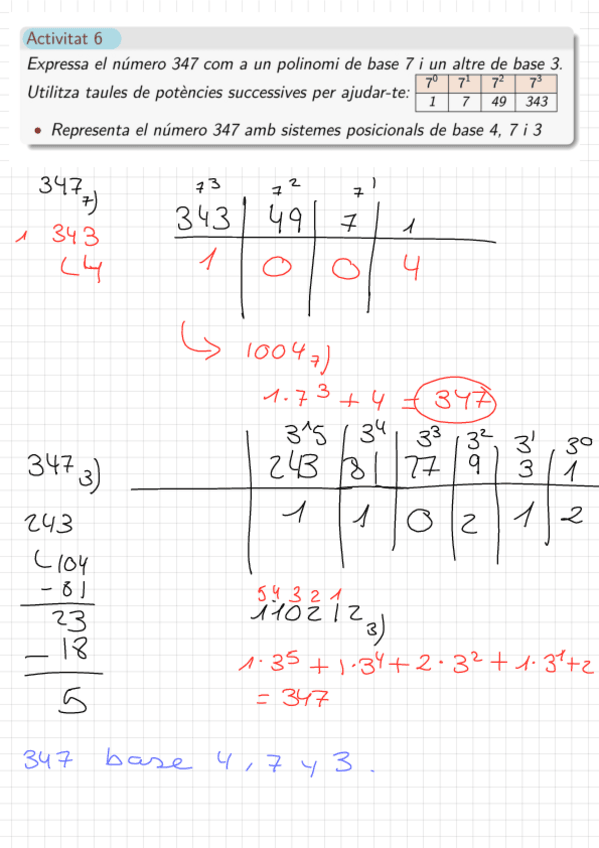 Activitat 6
Expressa el número 347 com a un polinomi de base 7 i un altre de base 3.
Utilitza taules de potències successives per ajudar-te:
7⁰ 7¹ 7² 7³
1 7 49 343
• Representa el número 347 amb sistemes posicionals de base 4, 7 i 3
347 7)
1 343
4
7³ 7² 7¹
343 49 7 1
1 0 0 4
1004 7)
1·7³ + 4 = 347
347 3)
243
104
- 81
23
- 18
5
3⁵ 3⁴ 3³ 3² 3¹ 3⁰
243 81 27 9 3 1
1 1 0 2 1 2
5 4 3 2 1
110212 3)
1·3⁵ + 1·3⁴ + 2·3² + 1·3¹ + 2
= 347
347 base 4, 7 y 3.